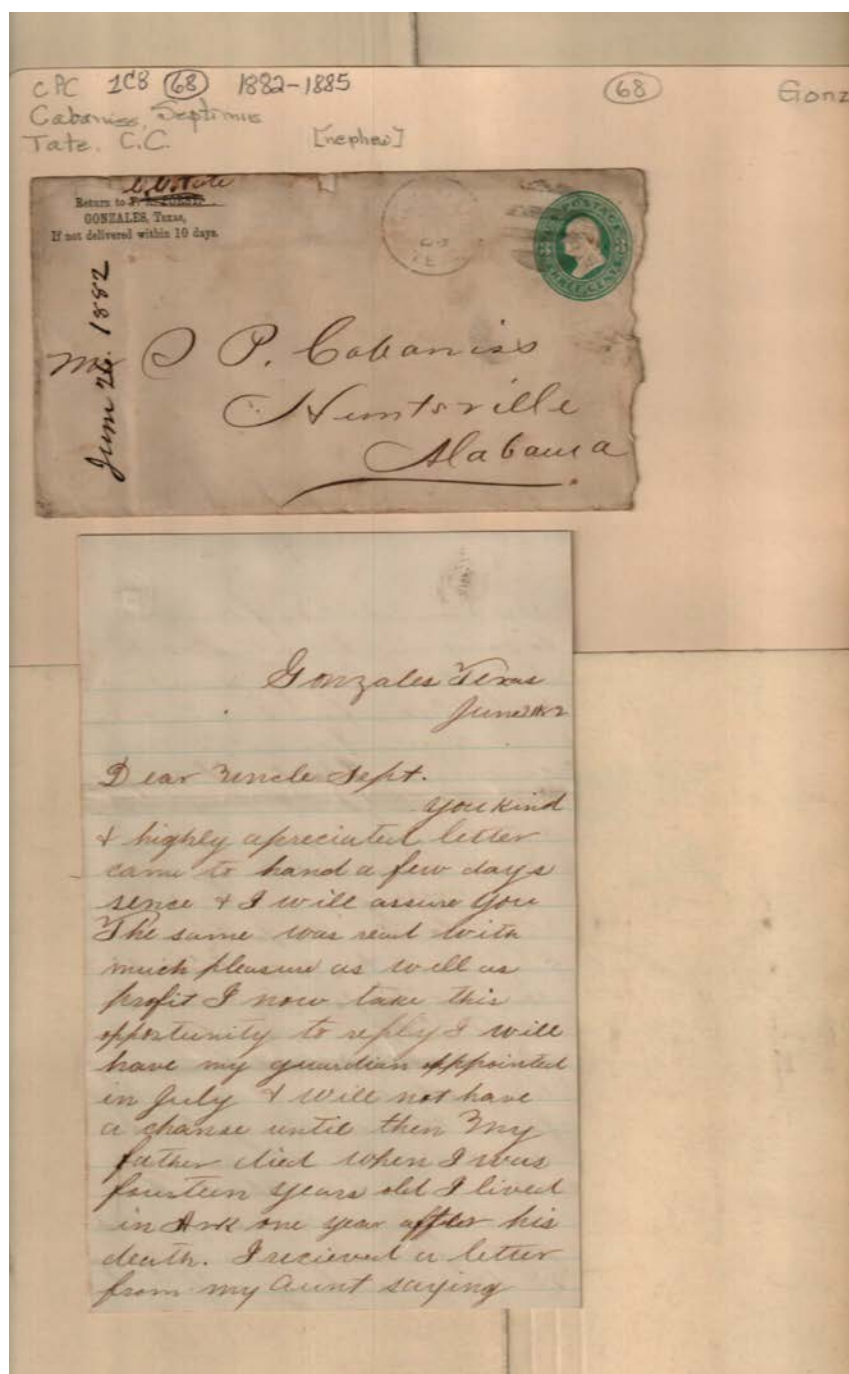 CPC 1C8 (68) 1882-1885
(68)
Gonz
Cabaniss, Septimus
Tate, C.C. [nephew]
C C Tate
Return to
GONZALES, Texas,
If not delivered within 10 days.
U.S. POSTAGE
THREE CENTS
June 26. 1882
Mr S P. Cabaniss
Huntsville
Alabama
Gonzales Texas
June 1882
Dear Uncle Sept.
You kind
& highly apreciated letter
came to hand a few days
sence & I will assure you
The same was read with
much pleasure as well as
profit I now take this
opportunity to reply I will
have my guardian appointed
in July & will not have
a chanse until then My
father died when I was
fourteen years old I lived
in Ark one year after his
death. I recieved a letter
from my Aunt saying